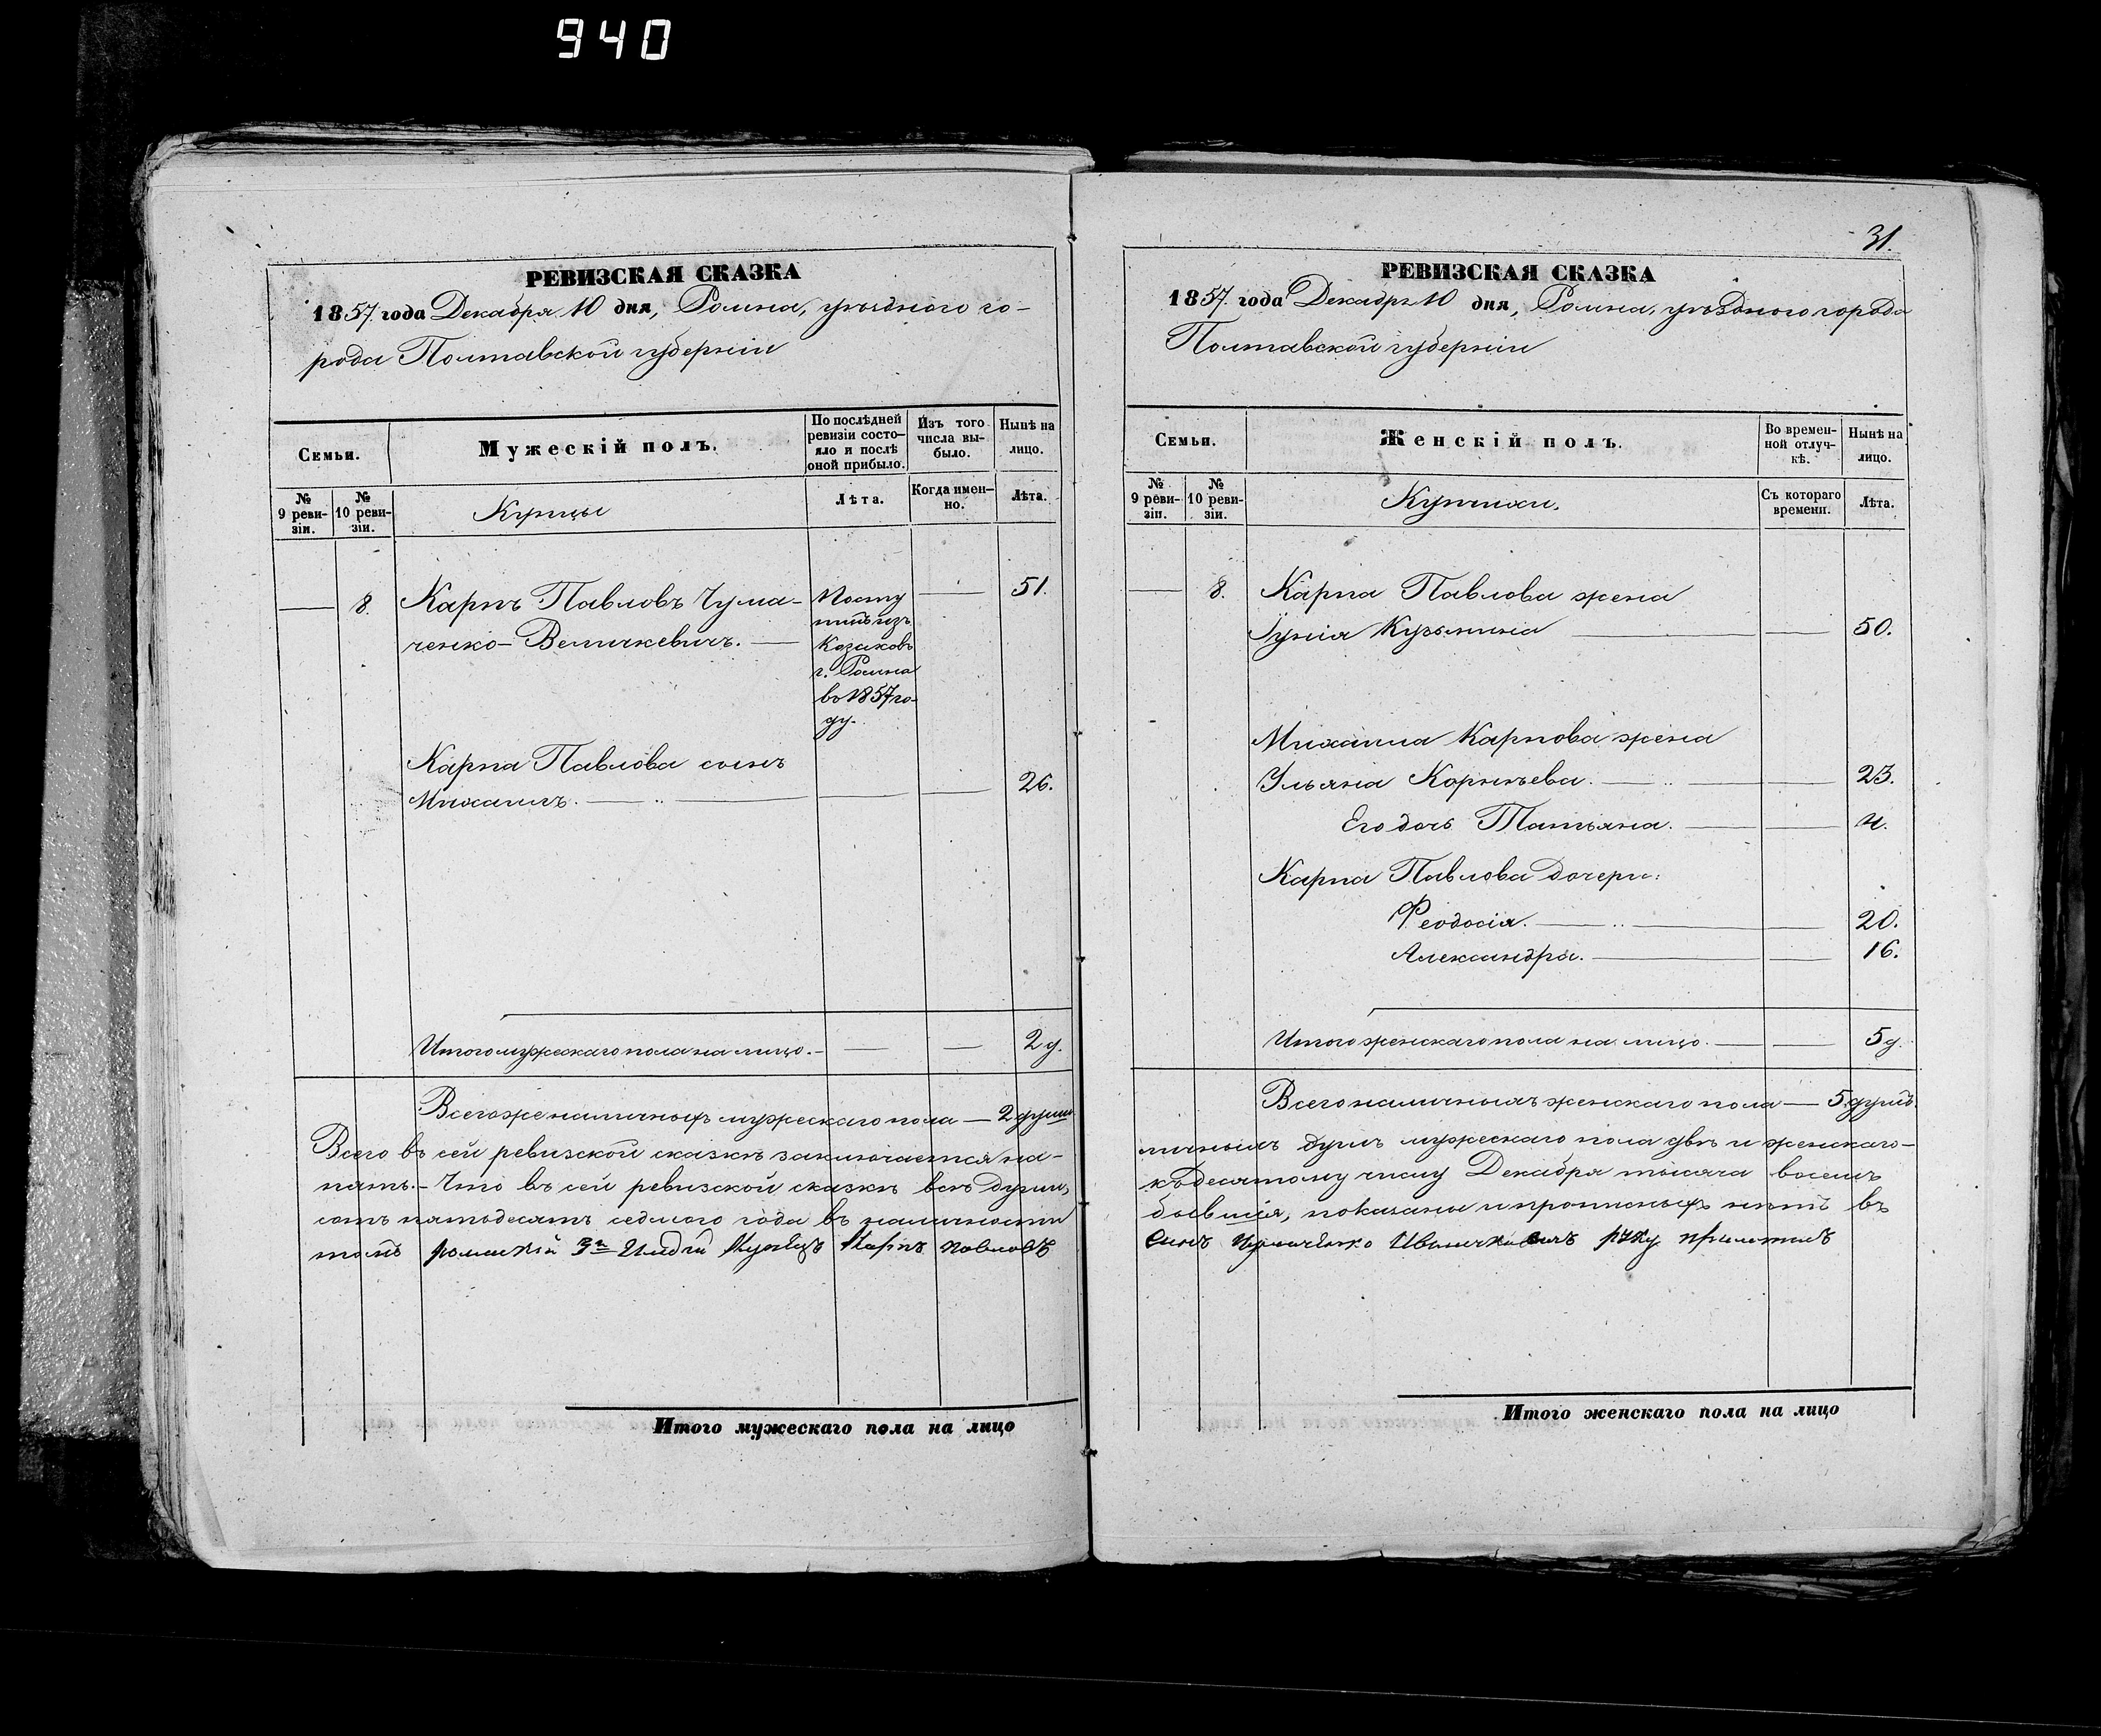 940
РЕВИЗСКАЯ СКАЗКА
1857 года Декабря 10 дня, Ромна, уѣзднаго го-
рода Полтавской губерніи
Семьи.
Мужескій полъ.
По послѣдней
ревизіи состо-
яло и послѣ
оной прибыло.
Изъ того
числа вы-
было.
Нынѣ на
лицо.
№
9 реви-
зіи.
№
10 реви-
зіи.
Купцы
Лѣта.
Когда имен-
но.
Лѣта.
— 8. Карпъ Павловъ Чума- — 51.
ченко-Величкевичъ. —
Посту
пилъ изъ
Козаковъ
г. Ромна
въ 1857 го-
ду.
Карпа Павлова сынъ
Михаилъ. — „ — — — 26.
Итого мужескаго пола на лицо. — — — 2 д.
Всего же наличныхъ мужескаго пола — 2 души
Всего въ сей ревизской сказкѣ заключается на-
пять. — Что въ сей ревизской сказкѣ всѣ души,
сотъ пятьдесятъ седмого года въ наличности
томъ роменскій 3й Гилдіи Купецъ Карпъ Павловъ
31.
РЕВИЗСКАЯ СКАЗКА
1857 года Декабря 10 дня, Ромна, уѣзднаго города
Полтавской губерніи
Семьи.
Женскій полъ.
Во времен-
ной отлуч-
кѣ.
Нынѣ на
лицо.
№
9 реви-
зіи.
№
10 реви-
зіи.
Купчихи.
Съ котораго
времени.
Лѣта.
— 8. Карпа Павлова жена
Кузьмина — — 50.
Михаила Карпова жена
Ульяна Корнѣева. — „ — — 23.
Его дочь Татьяна. — — 4.
Карпа Павлова дочери:
Феодосія. — „ — — 20.
Александра. — — 16.
Итого женскаго пола на лицо. — — 5 д.
Всего наличныхъ женскаго пола — 5 душъ.
личныхъ душъ мужескаго пола двѣ и женскаго-
къ десятому числу Декабря тысяча восемь
бывшія, показаны и прописныхъ нѣтъ въ
Сынъ руку приложилъ
Итого мужескаго пола на лицо
Итого женскаго пола на лицо